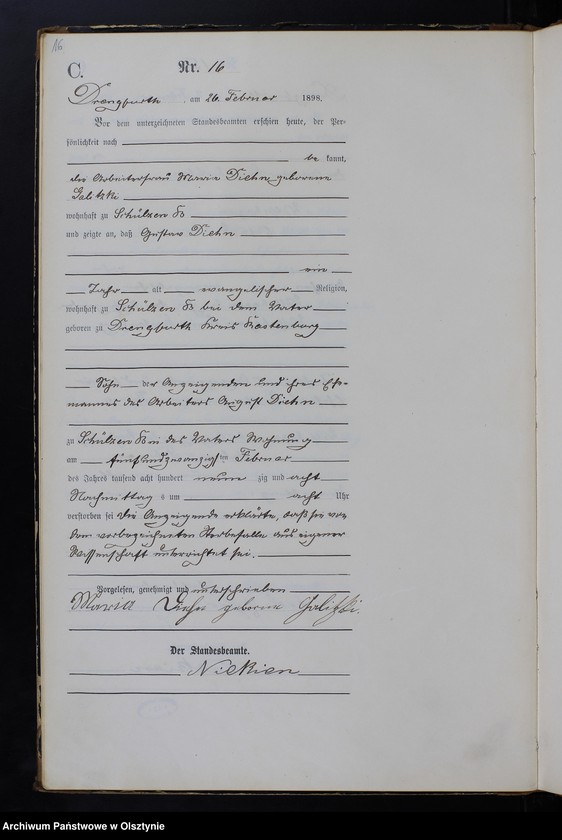 16
C.
Nr. 16
Drengfurth, am 26. Februar 1898.
Vor dem unterzeichneten Standesbeamten erschien heute, der Per-
sönlichkeit nach
be kannt,
die Arbeiterfrau Marie Diehn geborene
Galitzki
wohnhaft zu Schülzen
und zeigte an, daß Gustav Diehn
ein
Jahr alt evangelischer Religion,
wohnhaft zu Schülzen bei dem Vater
geboren zu Drengfurth Kreis Rastenburg
Sohn der Anzeigenden und ihres Ehe-
mannes des Arbeiters August Diehn
zu Schülzen in des Vaters Wohnung
am fünfundzwanzigsten Februar
des Jahres tausend acht hundert neun zig und acht
Nachmittag s um acht Uhr
verstorben sei Die Anzeigende erklärte, daß sie von
dem vorbezeichneten Sterbefalle aus eigener
Wissenschaft unterrichtet sei.
Vorgelesen, genehmigt und unterschrieben
Maria Diehn geborene Galitzki.
Der Standesbeamte.
Archiwum Państwowe w Olsztynie